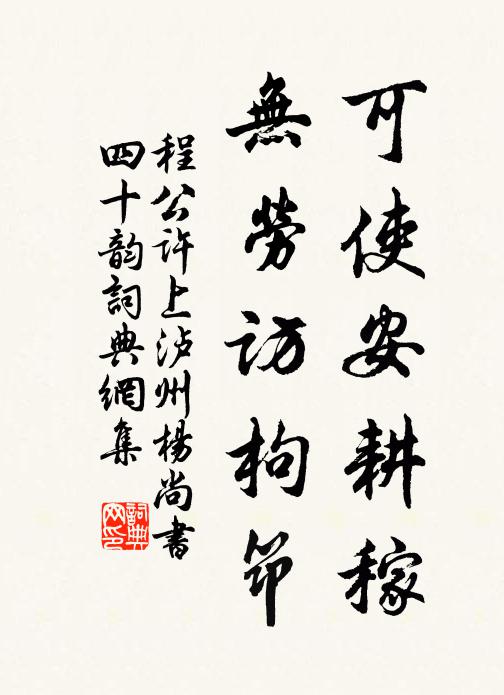 可使安耕稼
無勞訪枸筇
程公許上泸州楊尚書
四十韵詞典網集
詞典網印